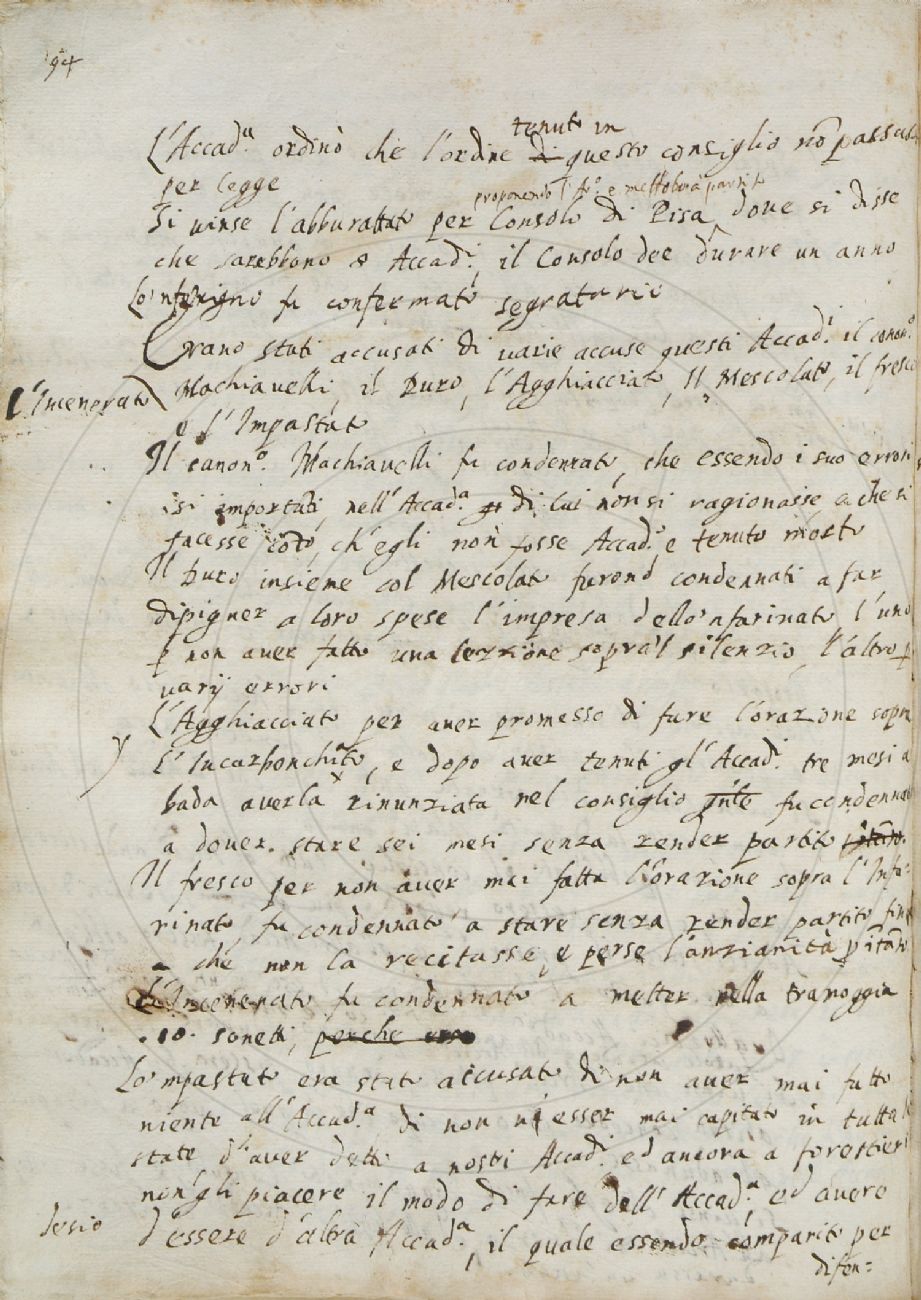 94
L'Accad.ª ordinò che l'ordine di tenuto in questo consiglio nō passasse
per legge
proponendo l'Ar.º e mettoberà partito
Si vinse l'abburattato per Consolo di Pisa, dove si disse
che sarebbono 8 Accad.i, il Consolo dee durare un anno
Lo'nferigno fu confermato segratario
Erano stati accusati di varie accuse questi Accad.i il canon.º
L'Incenerato Machiavelli, il Duro, l'Agghiacciato, Il Mescolato, il fresco
e l'Impastato
Il canon.º Machiavelli fu condennato, che essendo i suo errori
isi importati, nell'Accad.ª di lui non si ragionasse, e che si
facesse coto, ch'egli non fosse Accad.º e tenuto morto
Il Duro insieme col Mescolato furono condennati a far
dipigner a loro spese l'impresa dello'nfarinato l'uno
p non aver fatto una lezzione sopra'l silenzio, l'altro p
varij errori
L'Agghiacciato per aver promesso di fare l'orazione sopra
l'Incarbonchiato, e dopo aver tenuti gl'Accad.i tre mesi a
bada averla rinunziata nel consiglio fu condennato
a dover stare sei mesi senza render partito
Il fresco per non aver mai fatta l'orazione sopra l'Infa=
rinato, fu condennato a stare senza render partito fino
a che non la recitasse, e perse l'anzianità p itāto
L'Incenerato fu condennato a metter nella tramoggia
.10. sonetti, perche era
Lo'mpastato era stato accusato di non aver mai fatto
niente all'Accad.ª di non vi esser mai capitato in tutta
state d'aver detto a nostri Accad.i ed ancora a forestieri
non gli piacere il modo di fare dell'Accad.ª, ed avere
desio d'essere d'altra Accad.ª, il quale essendo comparito per
difen=